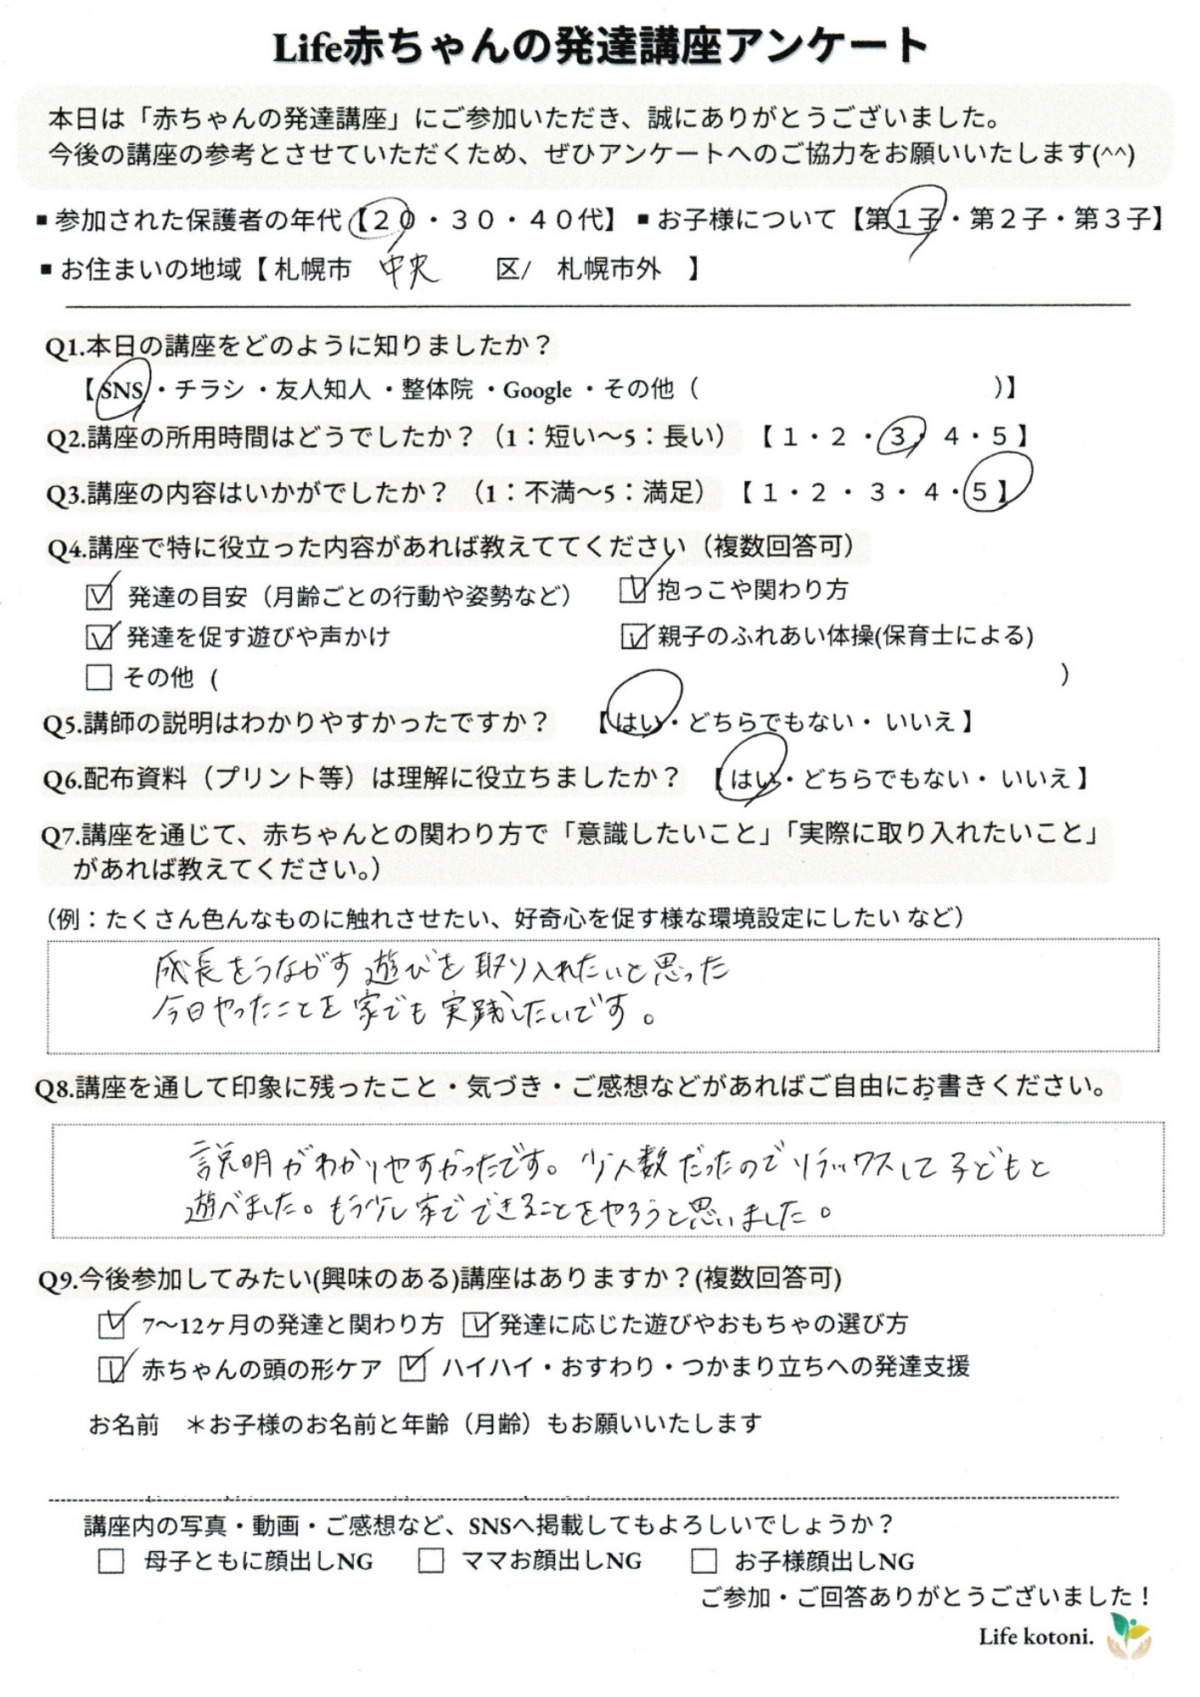 Life赤ちゃんの発達講座アンケート
本日は「赤ちゃんの発達講座」にご参加いただき、誠にありがとうございました。
今後の講座の参考とさせていただくため、ぜひアンケートへのご協力をお願いいたします(^^)
▪参加された保護者の年代【20・30・40代】▪お子様について【第1子・第2子・第3子】
▪お住まいの地域【 札幌市 中央 区/ 札幌市外 】
Q1.本日の講座をどのように知りましたか？
【SNS・チラシ ・友人知人 ・整体院 ・Google ・その他（ ）】
Q2.講座の所用時間はどうでしたか？（1：短い～5：長い） 【 1・2 ・3・ 4・5 】
Q3.講座の内容はいかがでしたか？ （1：不満～5：満足） 【 1・2 ・ 3・ 4・5 】
Q4.講座で特に役立った内容があれば教えててください（複数回答可）
☑ 発達の目安（月齢ごとの行動や姿勢など） ☑ 抱っこや関わり方
☑ 発達を促す遊びや声かけ ☑ 親子のふれあい体操(保育士による)
☐ その他（ ）
Q5.講師の説明はわかりやすかったですか？ 【はい・どちらでもない・ いいえ】
Q6.配布資料（プリント等）は理解に役立ちましたか？ 【はい・どちらでもない・ いいえ】
Q7.講座を通じて、赤ちゃんとの関わり方で「意識したいこと」「実際に取り入れたいこと」
があれば教えてください。）
（例：たくさん色んなものに触れさせたい、好奇心を促す様な環境設定にしたい など）
成長をうながす遊びを取り入れたいと思った
今日やったことを家でも実践したいです。
Q8.講座を通して印象に残ったこと・気づき・ご感想などがあればご自由にお書きください。
説明がわかりやすかったです。少人数だったのでリラックスして子どもと
遊べました。もう少し家でできることをやろうと思いました。
Q9.今後参加してみたい(興味のある)講座はありますか？(複数回答可)
☑ 7～12ヶ月の発達と関わり方 ☑ 発達に応じた遊びやおもちゃの選び方
☑ 赤ちゃんの頭の形ケア ☑ ハイハイ・おすわり・つかまり立ちへの発達支援
お名前 ＊お子様のお名前と年齢（月齢）もお願いいたします
講座内の写真・動画・ご感想など、SNSへ掲載してもよろしいでしょうか？
☐ 母子ともに顔出しNG ☐ ママお顔出しNG ☐ お子様顔出しNG
ご参加・ご回答ありがとうございました！
Life kotoni.